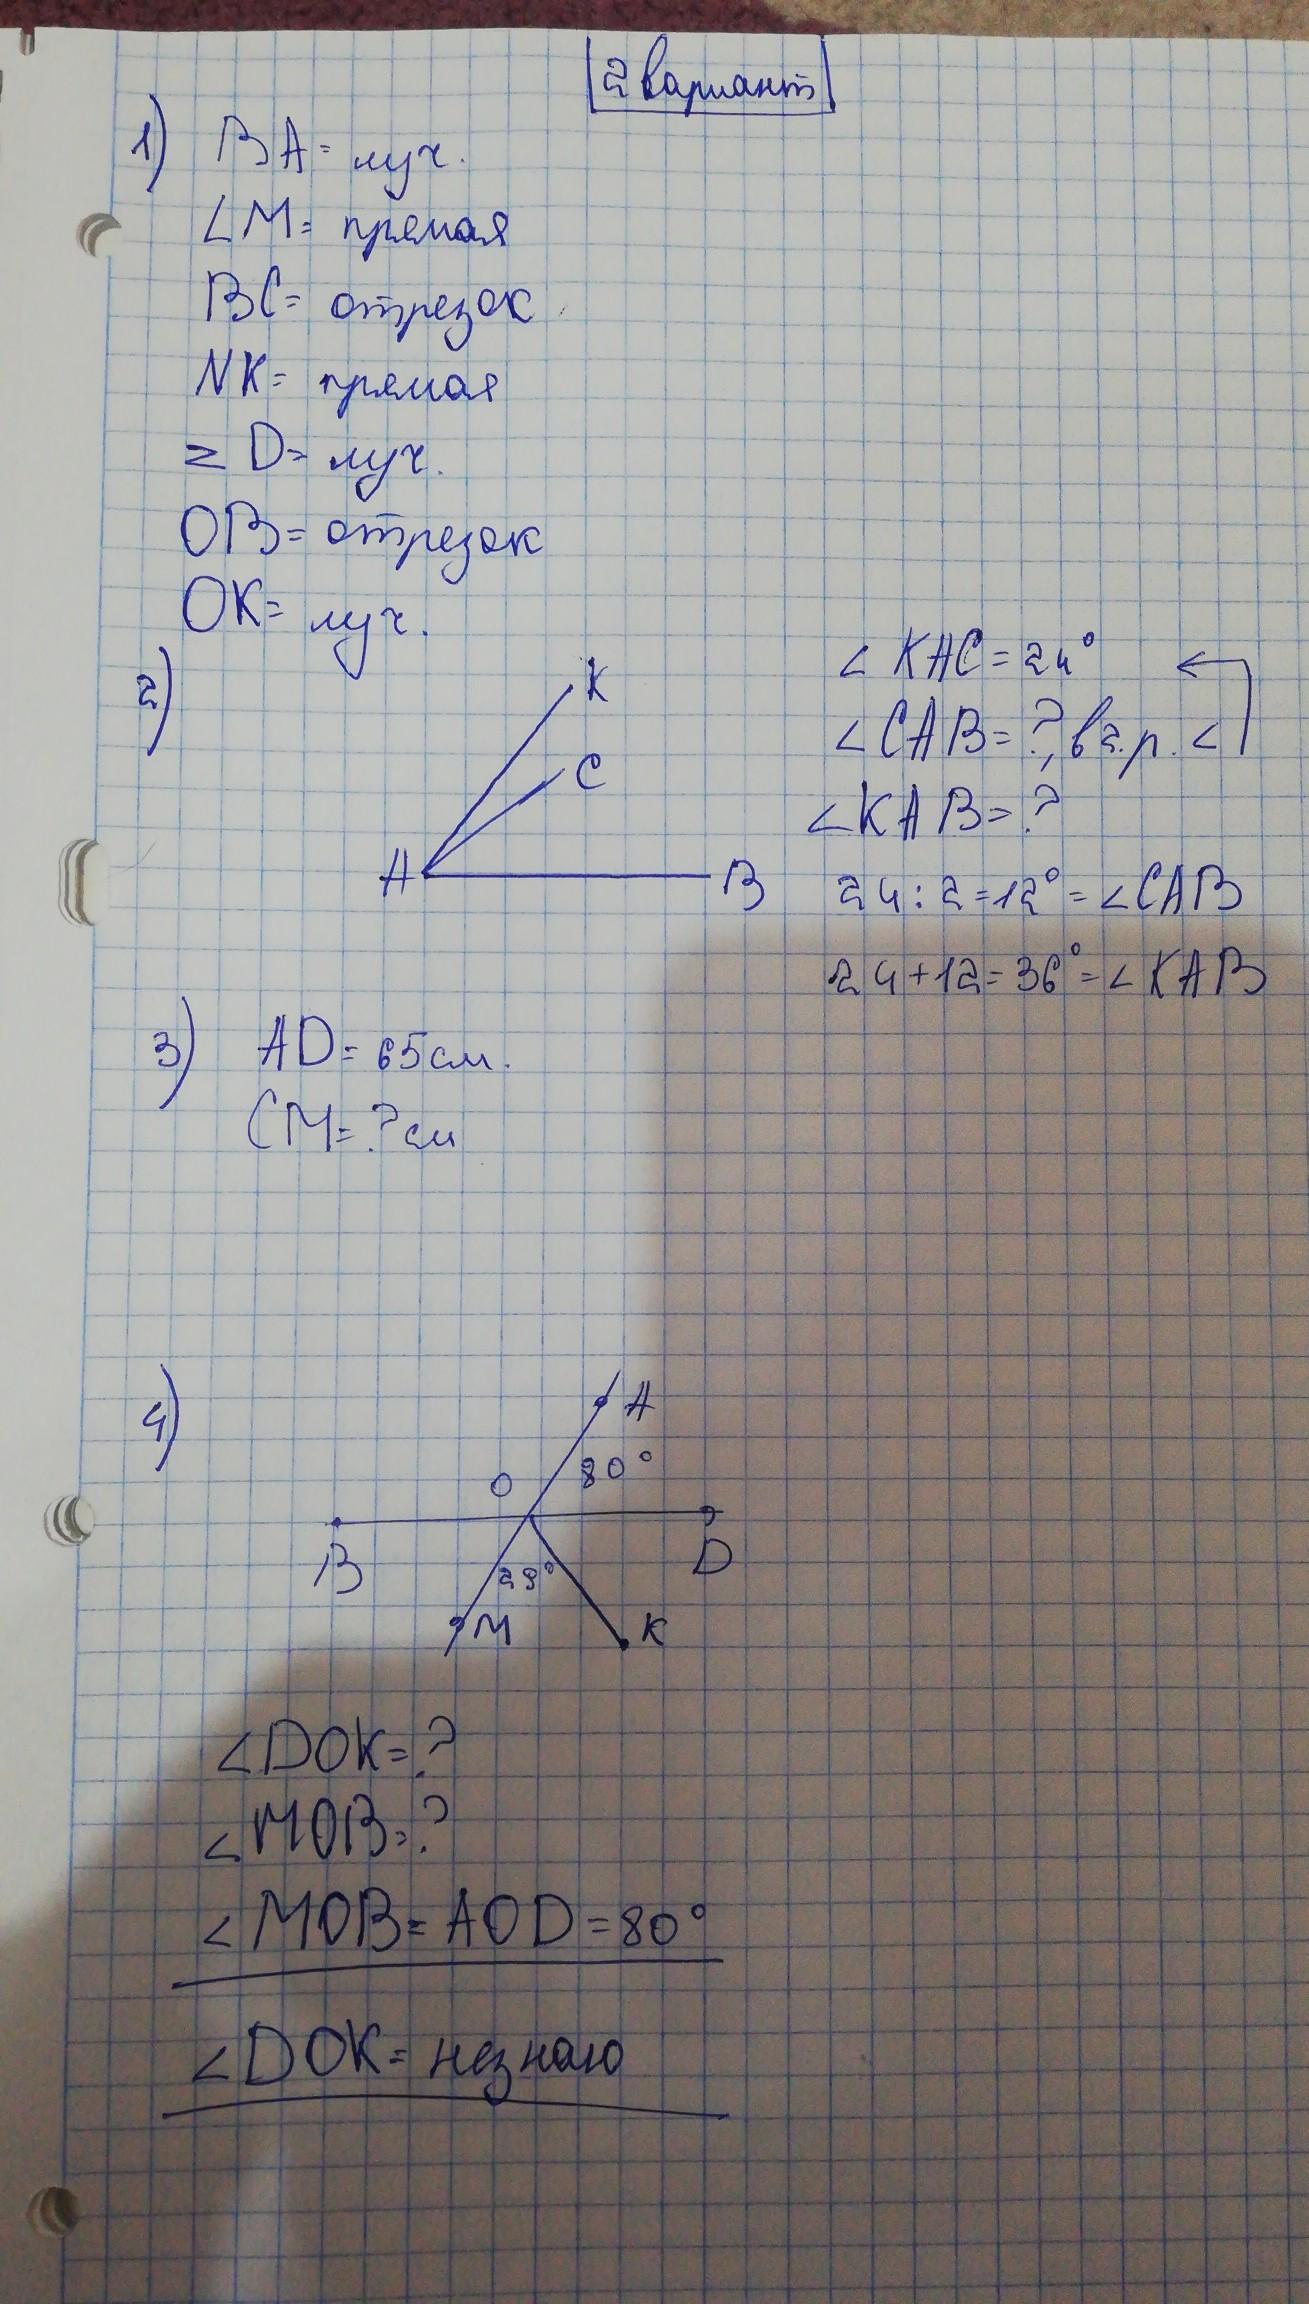 2 вариант
1) BA = луч.
∠M = прямая
BC = отрезок
NK = прямая
ZD = луч.
OB = отрезок
OK = луч.
2)
K
C
A
B
∠KAC = 24°
∠CAB = ?, в 2 р. <
∠KAB = ?
24 : 2 = 12° = ∠CAB
24 + 12 = 36° = ∠KAB
3) AD = 65 см.
CM = ? см
4)
A
O
80°
B
D
28°
M
K
∠DOK = ?
∠MOB = ?
∠MOB = AOD = 80°
∠DOK = незнаю